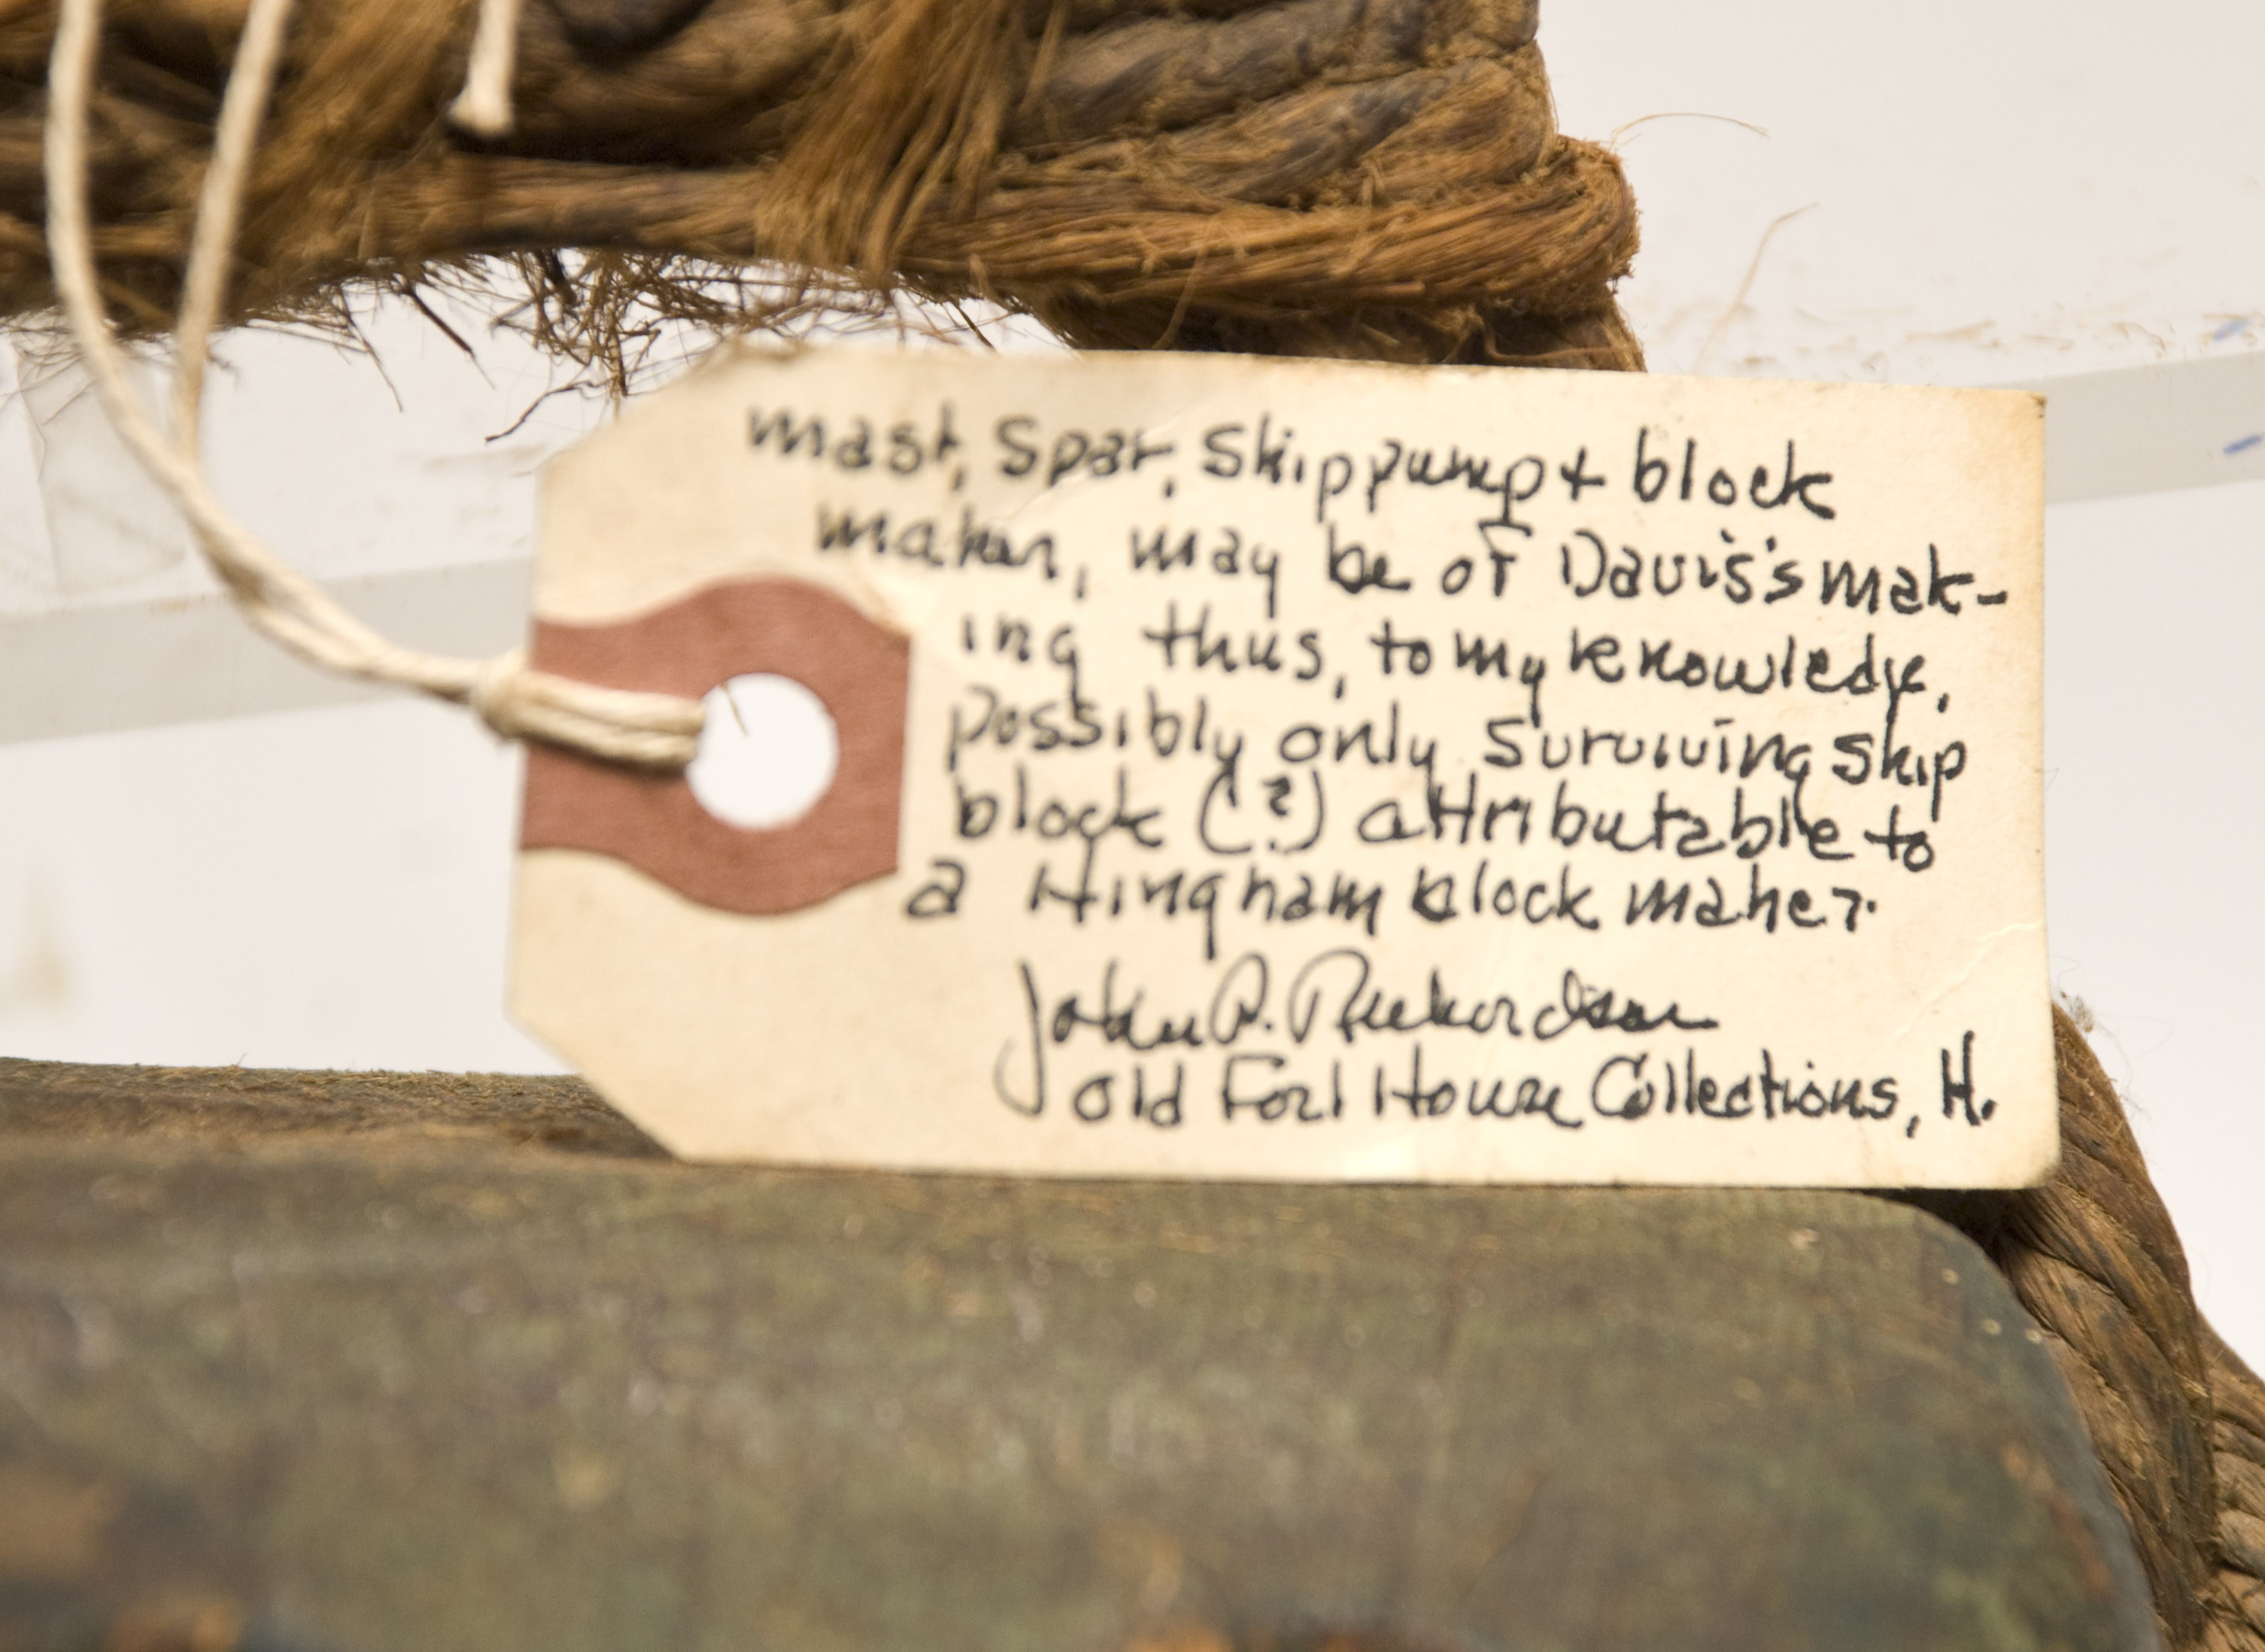 mast, Spar, Ship pump + block
maker, may be of Davis's mak-
ing thus, to my knowledge,
possibly only surviving ship
block (?) attributable to
a Hingham block maker.
John P. Richardson
Old Fort House Collections, H.